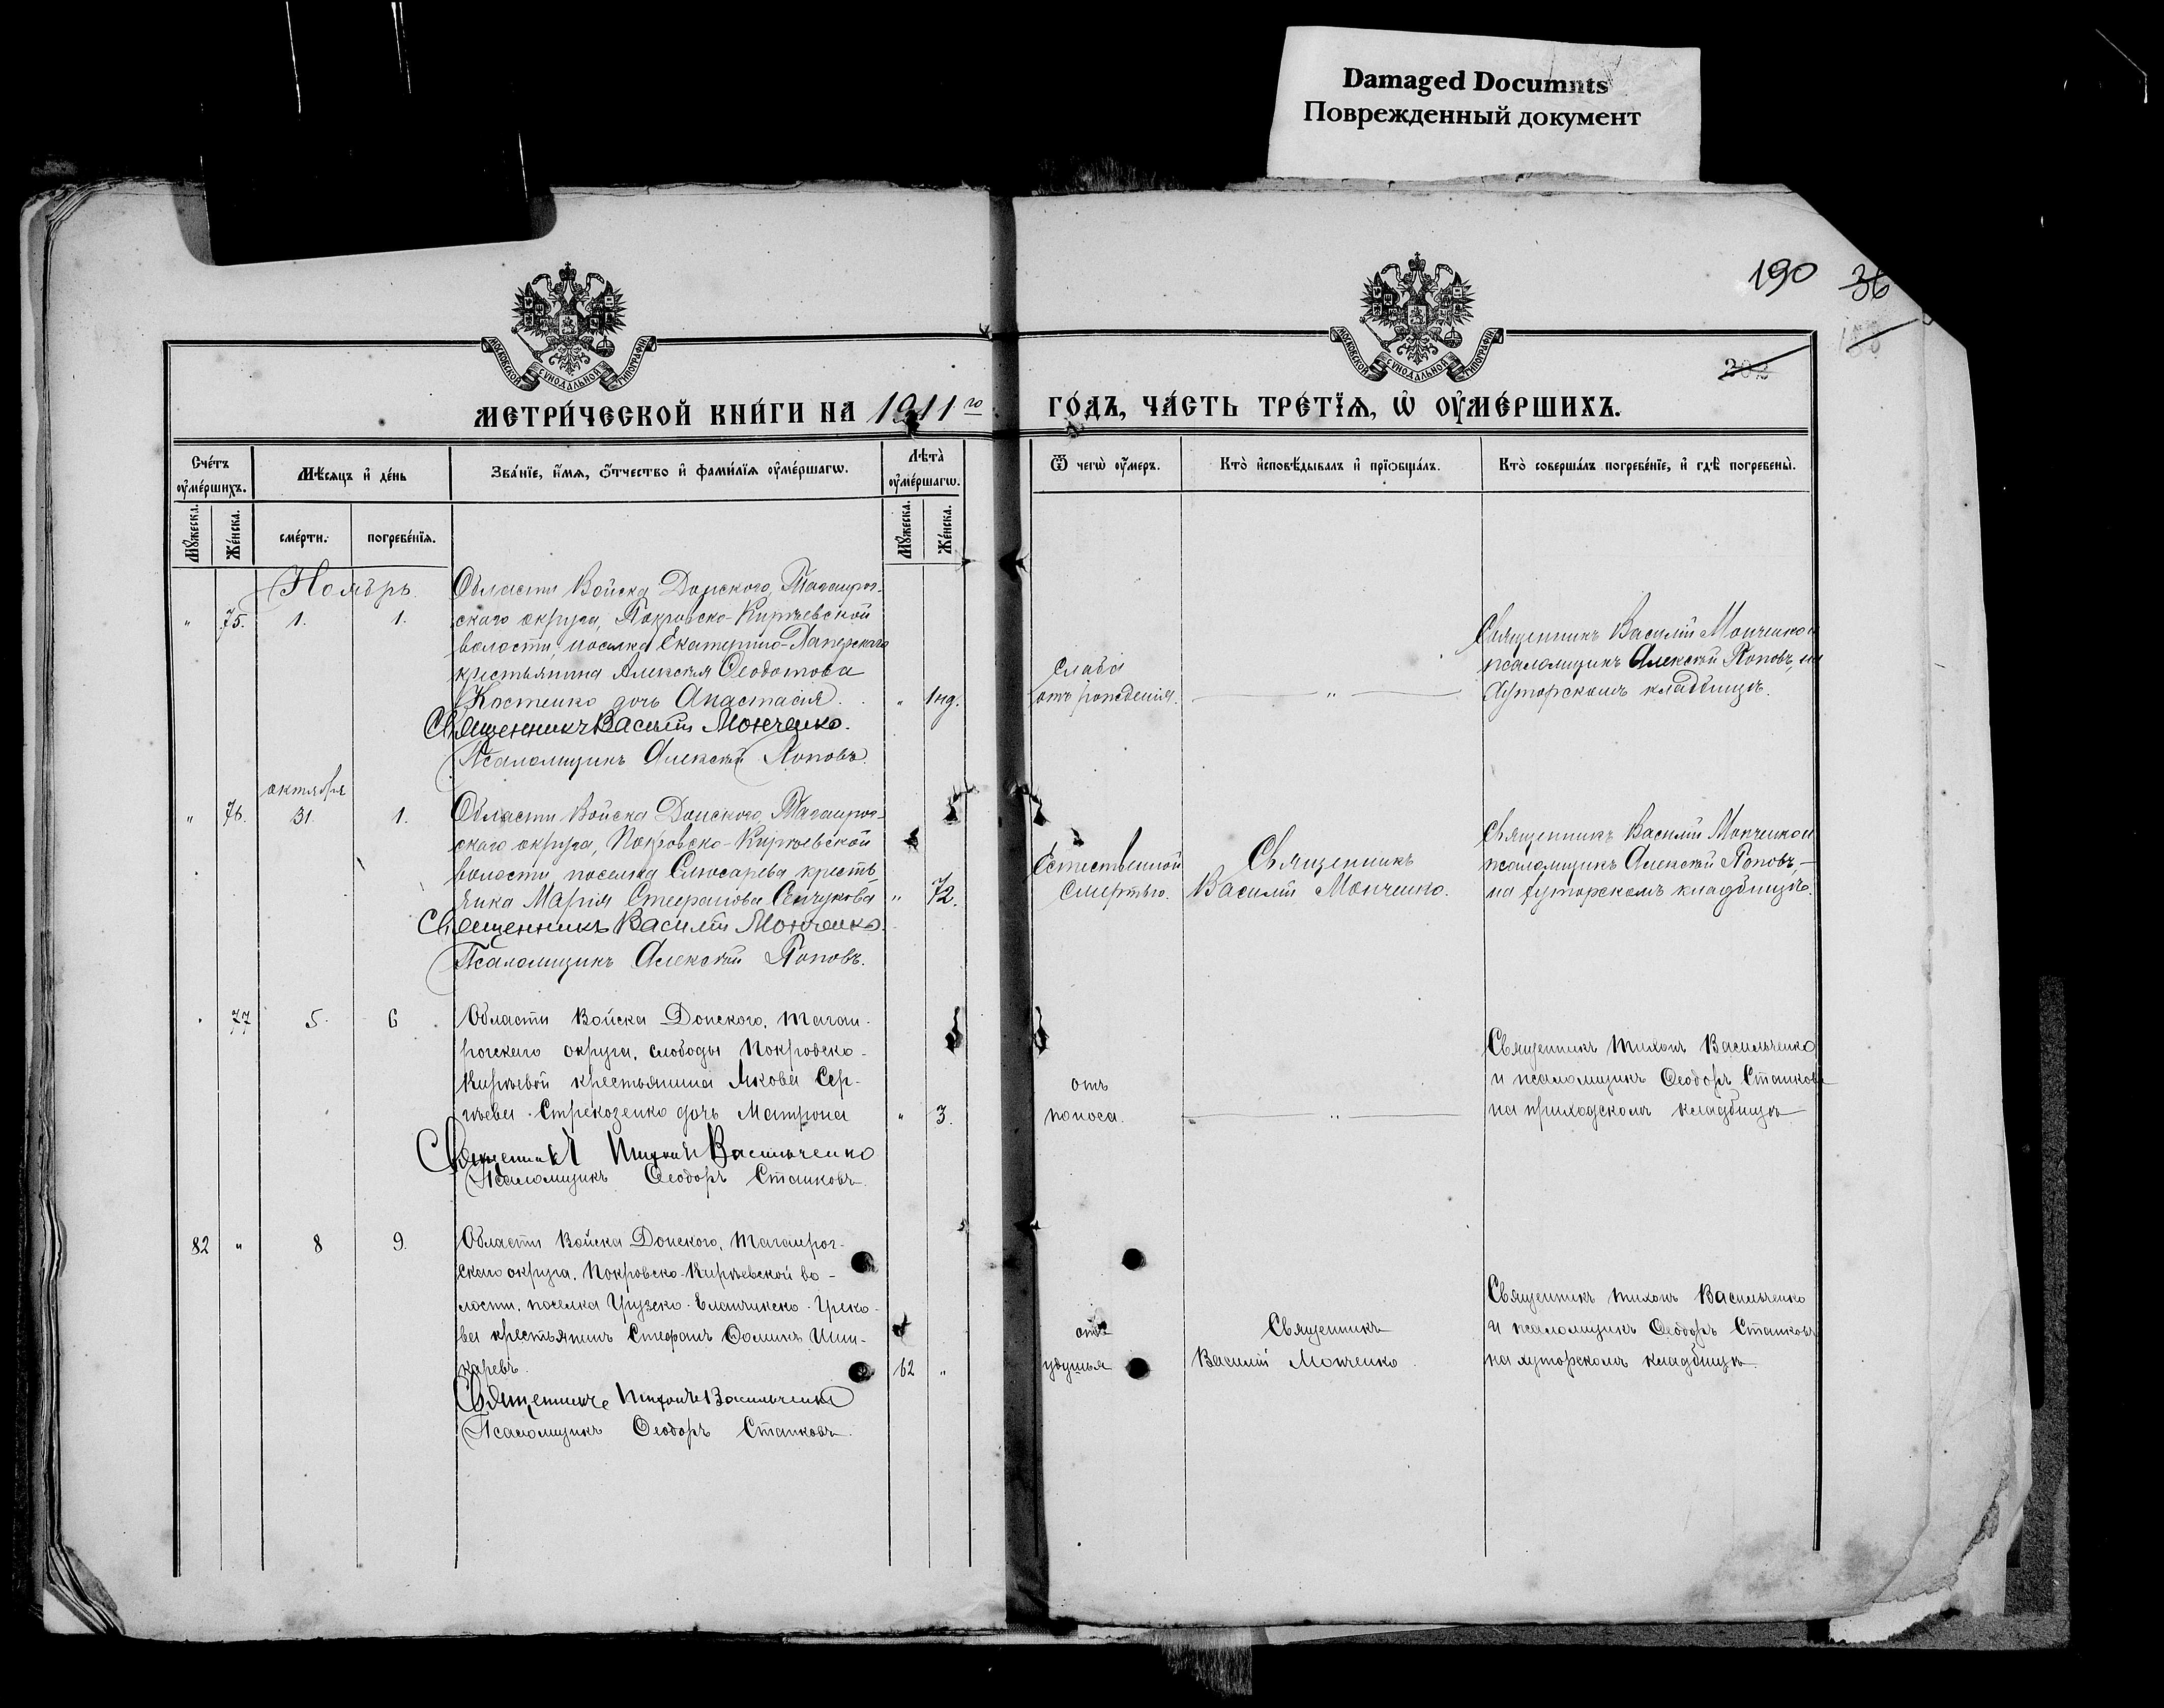 Damaged Documnts
Поврежденный документ
190 36
МОСКОВСКОЙ СѴНОДАЛЬНОЙ ТИПОГРАФІИ
МОСКОВСКОЙ СѴНОДАЛЬНОЙ ТИПОГРАФІИ
МЕТРИ́ЧЕСКОЙ КНИ́ГИ НА 1911 го ГО́ДЪ, ЧА́СТЬ ТРЕ́ТІѦ, Ѡ҆ ОУ҆МЕ́РШИХЪ.
Сче́тъ оу҆ме́ршихъ.
Мѣ́сяцъ и҆ де́нь
Зва́нїе, и҆́мя, ѻ҆́тчество и҆ фами́лїя оу҆ме́ршагѡ.
Лѣта̀ оу҆ме́ршагѡ.
Ѿ чегѡ̀ оу҆́меръ.
Кто̀ и҆сповѣ́дывалъ и҆ прїѡбща́лъ.
Кто̀ соверша́лъ погребе́нїе, и҆ гдѣ̀ погребены̀.
Мꙋ́жеска.
Же́нска.
сме́рти.
погребе́нїя.
Мꙋ́жеска.
Же́нска.
Ноябрь
" 75. 1. 1.
Области Войска Донского, Таганрог-
скаго округа, Покровско-Кирѣевской
волости, поселка Екатерино-Хаперскаго
крестьянина Алексѣя Ѳеодотова
Костенко дочь Анастасія. " 1 нд.
Священникъ Василій Монченко.
Псаломщикъ Алексѣй Поповъ.
слаба
отъ рожденія.
"
Священникъ Василій Монченко и
псаломщикъ Алексѣй Поповъ, на
хуторскомъ кладбищѣ.
октября
" 76. 31. 1.
Области Войска Донского, Таганрог-
скаго округа, Покровско-Кирѣевской
волости, поселка Слюсарева кресть-
янка Марія Стефанова Сенчукова " 72.
Священникъ Василій Монченко.
Псаломщикъ Алексѣй Поповъ.
Естественной
смертью.
Священникъ
Василій Монченко.
Священникъ Василій Монченко и
псаломщикъ Алексѣй Поповъ, —
на хуторскомъ кладбищѣ.
" 77 5. 6
Области Войска Донского, Таган-
рогскаго округа, слободы Покровско-
Кирѣевой крестьянина Якова Сер-
гѣева Стрекозенко дочь Матрона " 3.
Священникъ Тихонъ Васильченко
Псаломщикъ Ѳеодоръ Станковъ.
отъ
поноса.
"
Священникъ Тихонъ Васильченко
и псаломщикъ Ѳеодоръ Станковъ
на приходскомъ кладбищѣ
82 " 8 9.
Области Войска Донского, Таганрог-
скаго округа, Покровско-Кирѣевской во-
лости, поселка Грузско-Еланчикско-Греко-
ва крестьянинъ Стефанъ Ѳоминъ Шин-
каревъ. 62 "
Священникъ Тихонъ Васильченко
Псаломщикъ Ѳеодоръ Станковъ.
отъ
удушья
Священникъ
Василій Монченко.
Священникъ Тихонъ Васильченко
и псаломщикъ Ѳеодоръ Станковъ
на хуторскомъ кладбищѣ